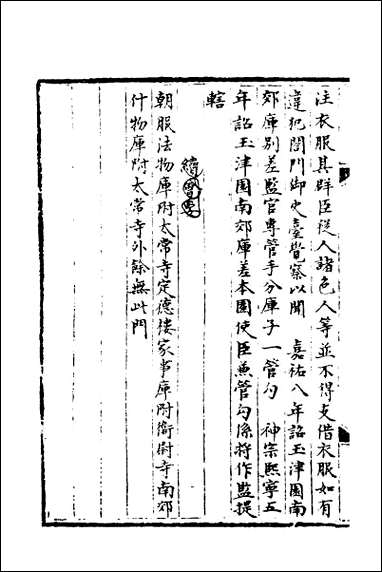 注衣服其群臣從人諸色人等並不得支借衣服如有
違犯閤門御史臺覺察以聞　嘉祐八年詔玉津園南
郊庫別差監官專管手分庫子一管勾　神宗熙寧五
年詔玉津園南郊庫差本園使臣兼管勾係將作監提
轄
續會要
朝服法物庫附太常寺定德樓家事庫附衞尉寺南郊
什物庫附太常寺外餘無此門